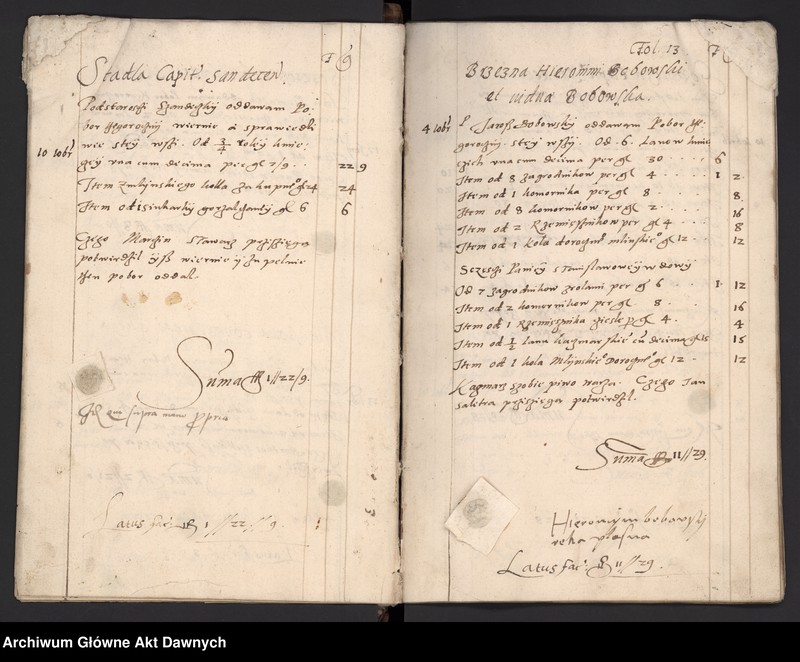 Stadla Capit. Sandecen.
Podstarosci Sandeczky oddawam Po-
bor wiernie a sprawiedli
wie stey wssi. Od 3/4 roley kmie-
czey vna cum decima per gl 2/9 . . 22 9
10 10br
Item zmlynskiego kola zakupne° gl 24 24
Item od iSinkarky gorzalczaney gl 6 6
Czego Marczin Stawarz przissięgą
potwierdzil ysz wiernie y zupelnie
then pobor oddal.
Suma ff 1//22/9.
Id qui supra manu ppria
Latus fac. ff 1//22//9.
Fol. 13
Brzezna Hieronimi Bobowski
et vidua Bobowska.
4 10br
P. Jarosz Bobowsky oddawam Pobor
stey wssi. Od 6. Lanow kmie
czich vna cum decima per gl 30 . . . 6
Item od 8 zagrodnikow per gl 4 . . . 1 2.
Item od 1 komornika per gl 8 . . . 8.
Item od 8 komornikow per gl 2 . . . 16
Item od 2 Rzemięsnikow per gl 4 . . . 8
Item od 1 kola dorocżn° mlinskie° gl 12 . . 12
Sczęsci Paniey Stanislawowey wdowy
Od 7 zagrodnikow zrolami per gl 6 . . . 1. 12
Item od 2 komornikow per gl 8. . . . 16
Item od 1 Rzemięsnika gl 4. . . 4
Item od 1/2 Lana kaczmarskie° cū decima gl 15 15
Item od 1 kola Mlynskie° Doroczne° gl 12 . . 12
Kaczmarz szobie piwo warza. Czego Jan
Salitra przissięgą potwierdzil.
Suma ff 11//29.
Hieronym bobowskÿ
reka vlasna
Latus fac. ff 11//29.
Archiwum Główne Akt Dawnych